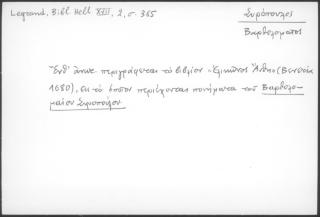 Legrand, Bibl Hell XVIII, 2, σ. 365
Συρόπουλος
Βαρθολομαῖος
περιγράφεται τὸ βιβλίον «Ἑλικῶνος Ἄνθη» (Βενετία
1680), εἰς τὸ ὁποῖον περιέχονται ποιήματα τοῦ Βαρθολο-
μαίου Συροπούλου